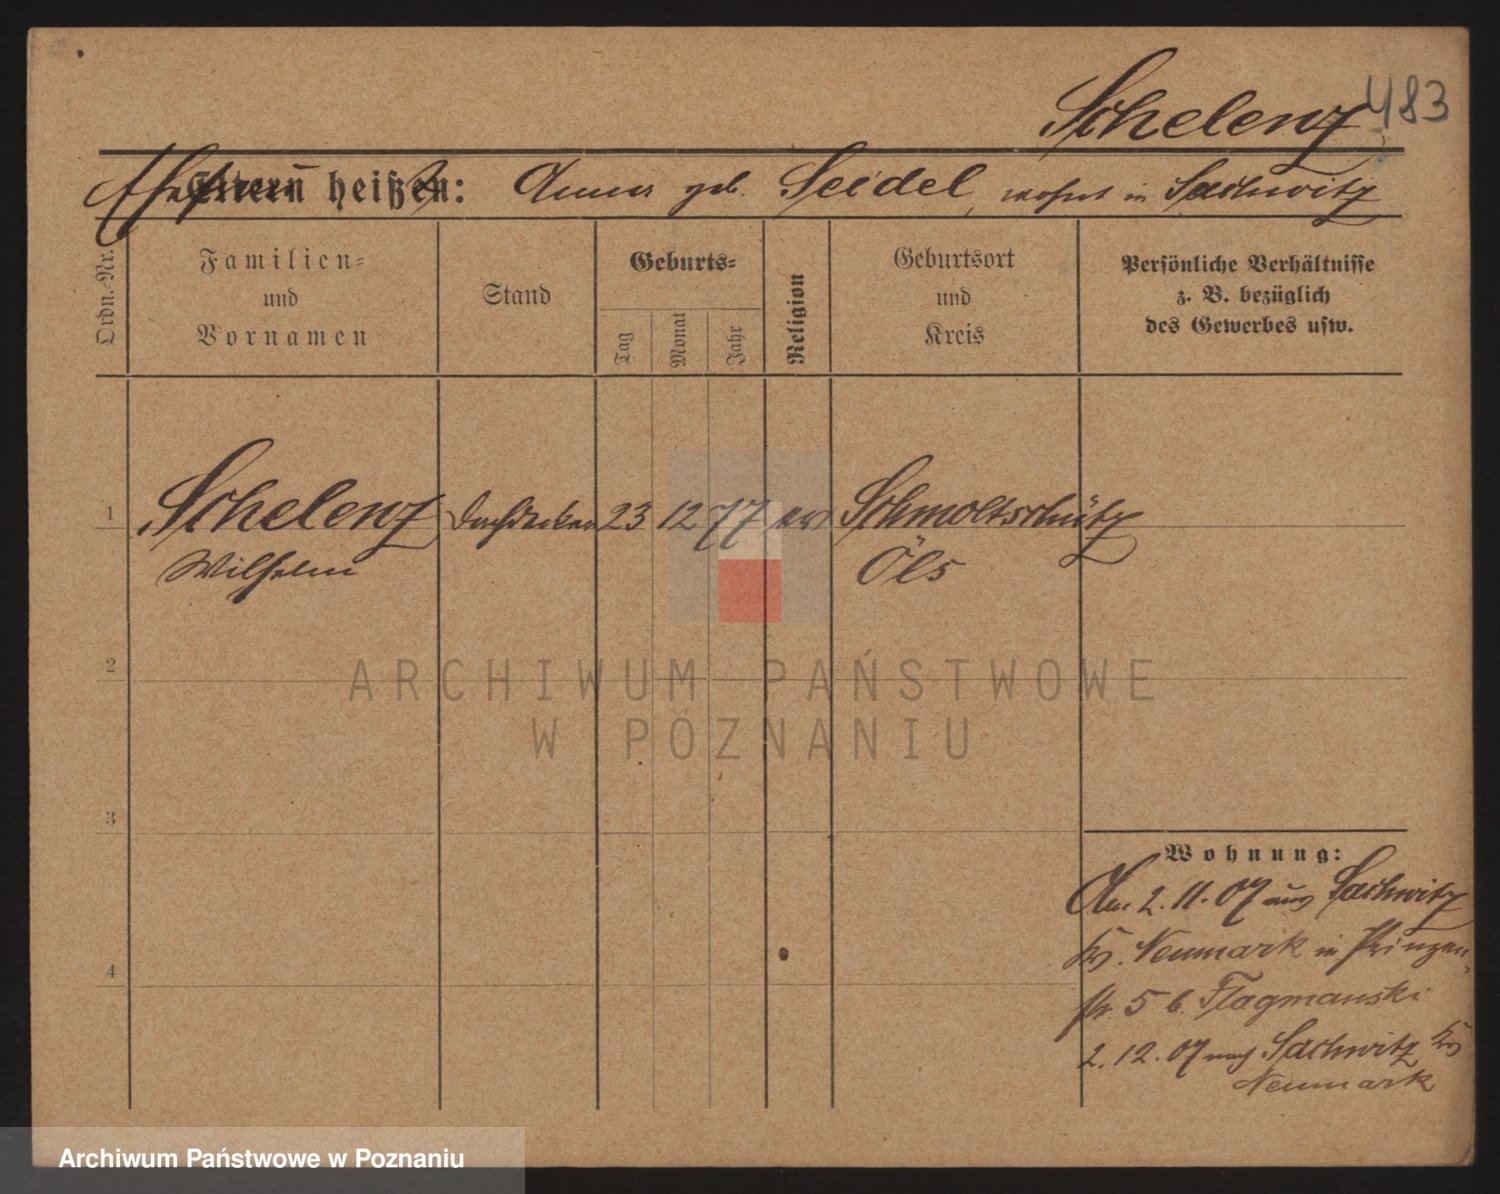 Schelenz
483
Ehefrau
Eltern heißen: Anna geb. Seidel, wohnt in Sachwitz
Ordn.-Nr.
Familien-
und
Vornamen
Stand
Geburts-
Tag
Monat
Jahr
Religion
Geburtsort
und
Kreis
Persönliche Verhältnisse
z. B. bezüglich
des Gewerbes usw.
1
Schelenz Dachdecker 23 12 77 ev Schmoltschütz
Wilhelm Öls
2
ARCHIWUM PAŃSTWOWE
W POZNANIU
3
4
Wohnung:
Am 2. 11. 07 aus Sachwitz
Krs. Neumark in Prinzen-
str. 5 b. Flagmanski
2. 12. 07 nach Sachwitz Krs
Neumark
Archiwum Państwowe w Poznaniu